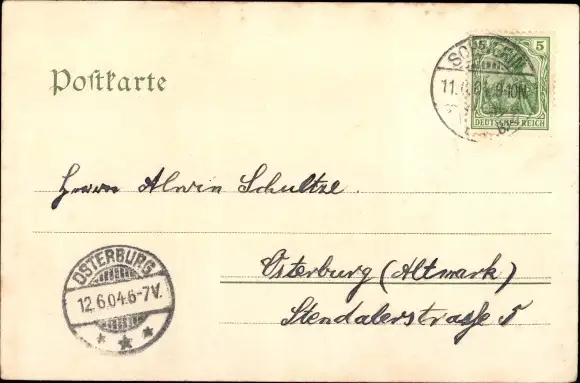 Postkarte
5 5
DEUTSCHES REICH
Herrn Alwin Schultze.
OSTERBURG
12.6.04.6-7V.
Osterburg (Altmark)
Stendalerstrasse 5